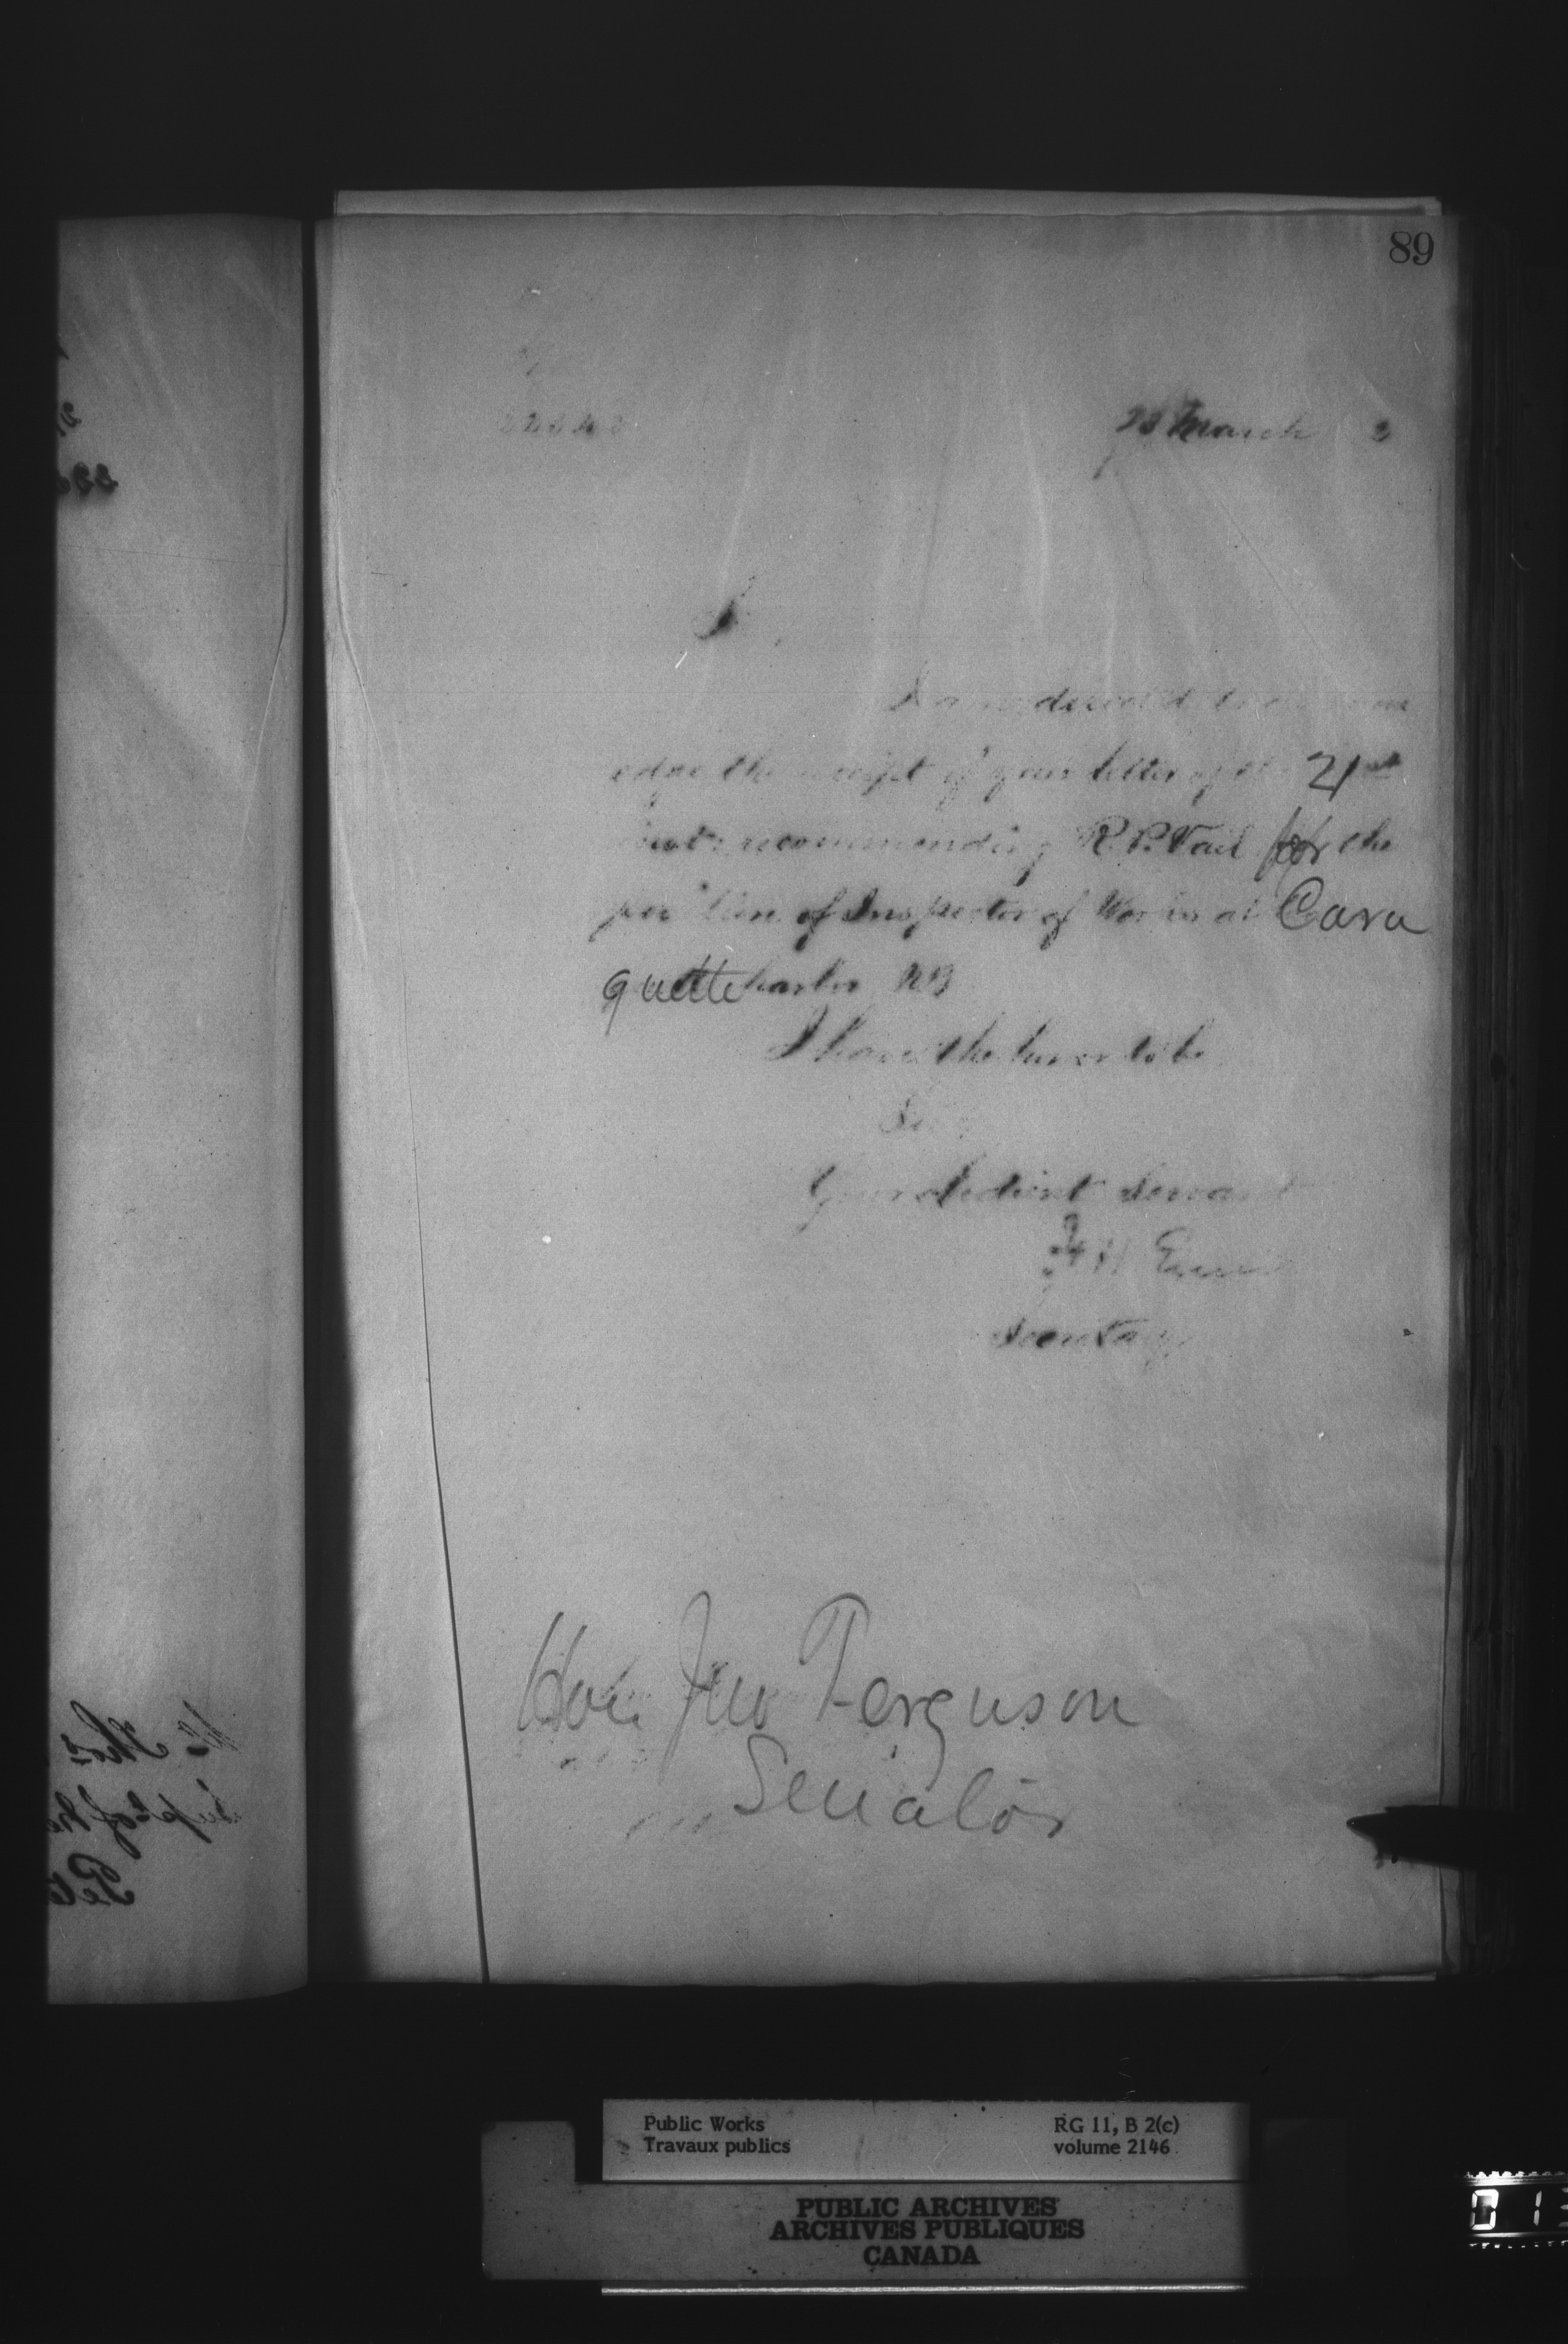 89
23 March 2
I am directed to
edge the receipt of your letter of the 21st
inst. recommending R. P. Vail for the
position of Inspector of Works at Cara
quette harbor NB
I have the honor to be
Sir
Your obedient Servant
F H Ennis
Secretary
Hon Jno Ferguson
Senator
Public Works
Travaux publics
RG 11, B 2(c)
volume 2146
PUBLIC ARCHIVES
ARCHIVES PUBLIQUES
CANADA